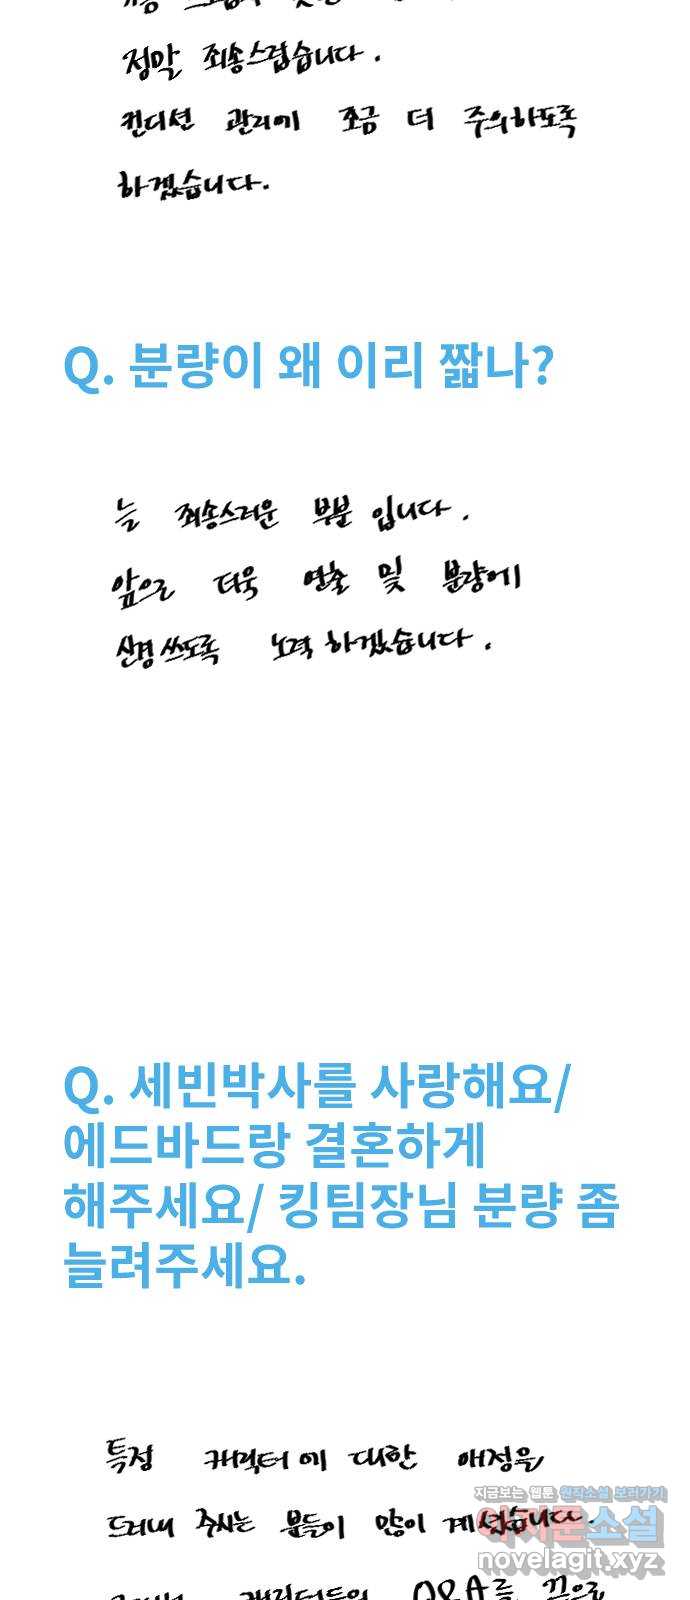 정말 죄송스럽습니다.
컨디션 관리에 조금 더 주의하도록
하겠습니다.
Q. 분량이 왜 이리 짧나?
늘 죄송스러운 부분 입니다.
앞으로 더욱 연출 및 분량에
신경 쓰도록 노력 하겠습니다.
Q. 세빈박사를 사랑해요/
에드바드랑 결혼하게
해주세요/ 킹팀장님 분량 좀
늘려주세요.
특정 캐릭터에 대한 애정을
드러내 주시는 분들이 많이 계셨습니다.
지금보는 웹툰 원작소설 보러가기
아지툰소설
novelagit.xyz
캐릭터들의 Q&A를 끝으로